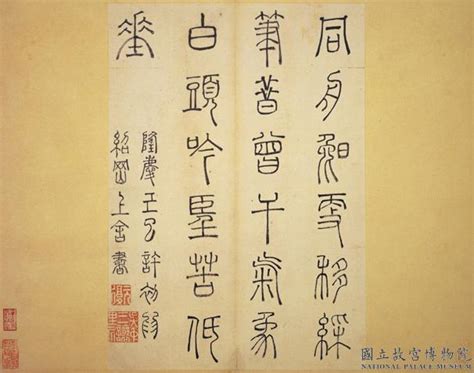 同舟晚更移綵
筆昔曾干氣象
白頭吟望苦低
垂
隆慶壬 許初為
紹 上舍書
國立故宮博物院
NATIONAL PALACE MUSEUM